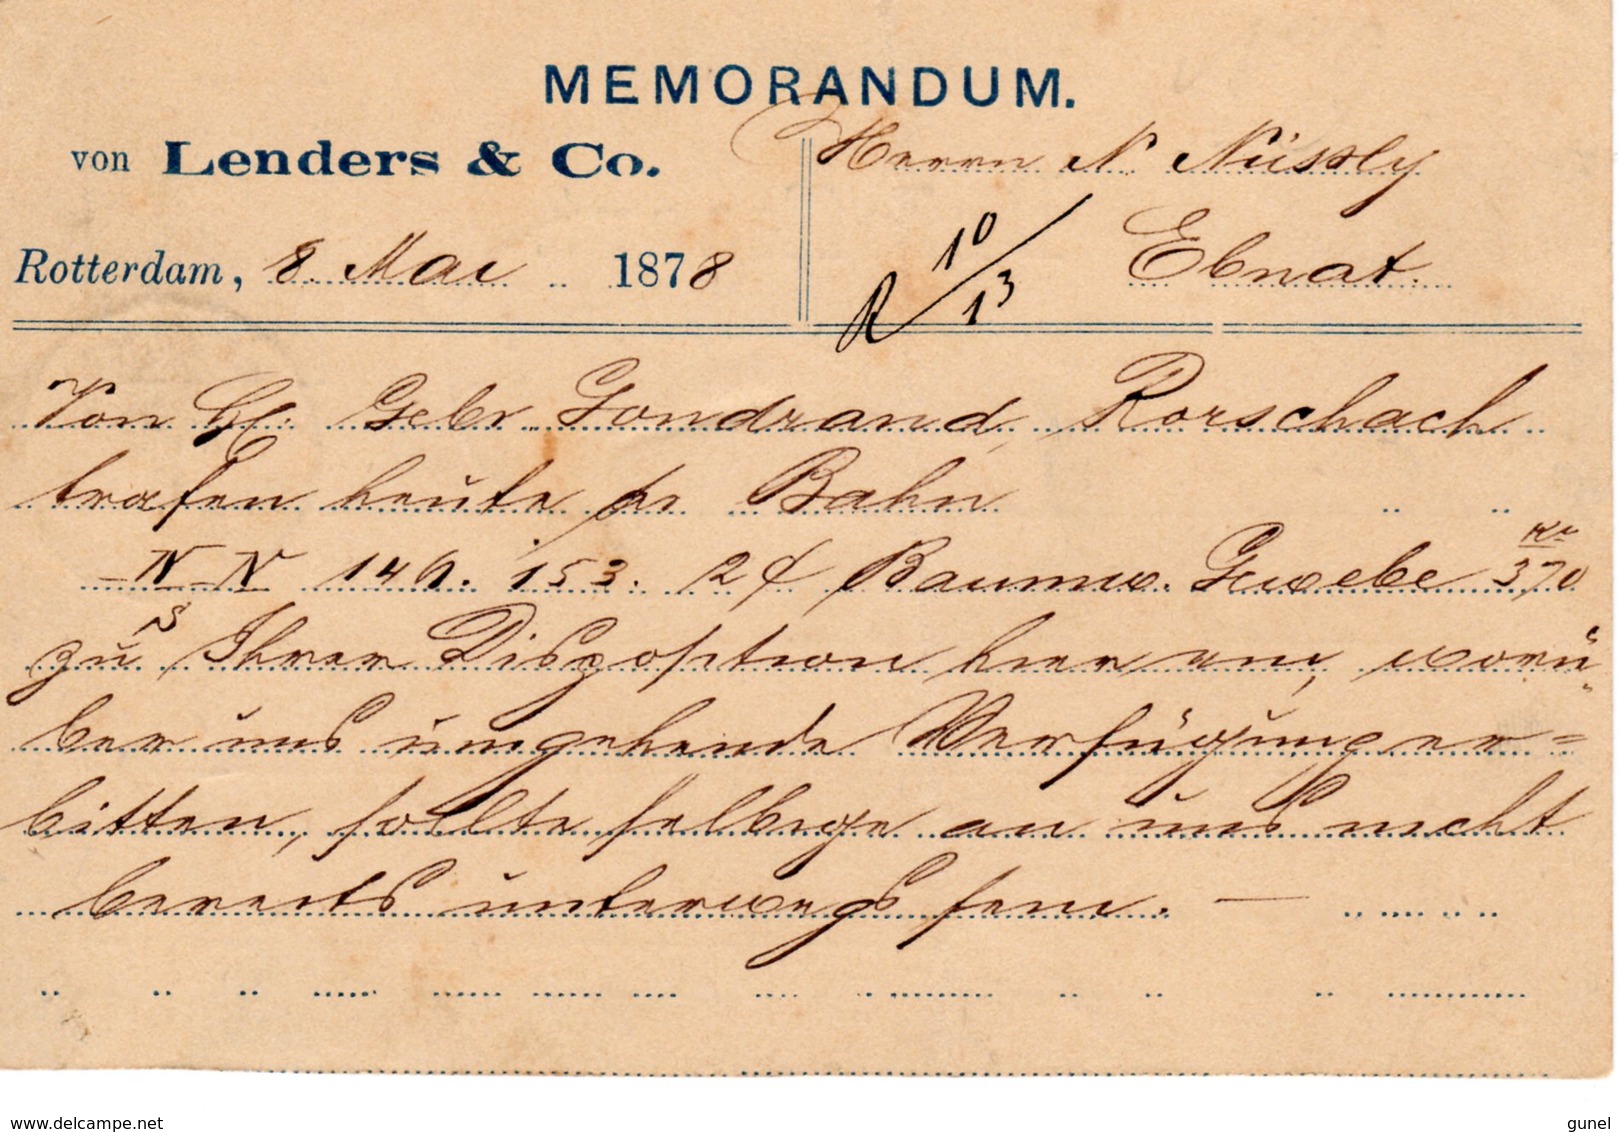 MEMORANDUM.
von Lenders & Co.
Herrn N. Nüssly
Rotterdam, 8. Mai 1878
Ebnat.
R 10/13
Von HH. Gebr. Gondrand, Rorschach
trafen heute pr Bahn
N N 146. 153. 2 C/ Baumw. Gewebe Ko 370
zu Ihrer Disposition hier ein, worü
ber uns umgehende Verfügung er=
bitten, sollte selbige an uns nicht
bereits unterwegs sein. —
www.delcampe.net
gunel